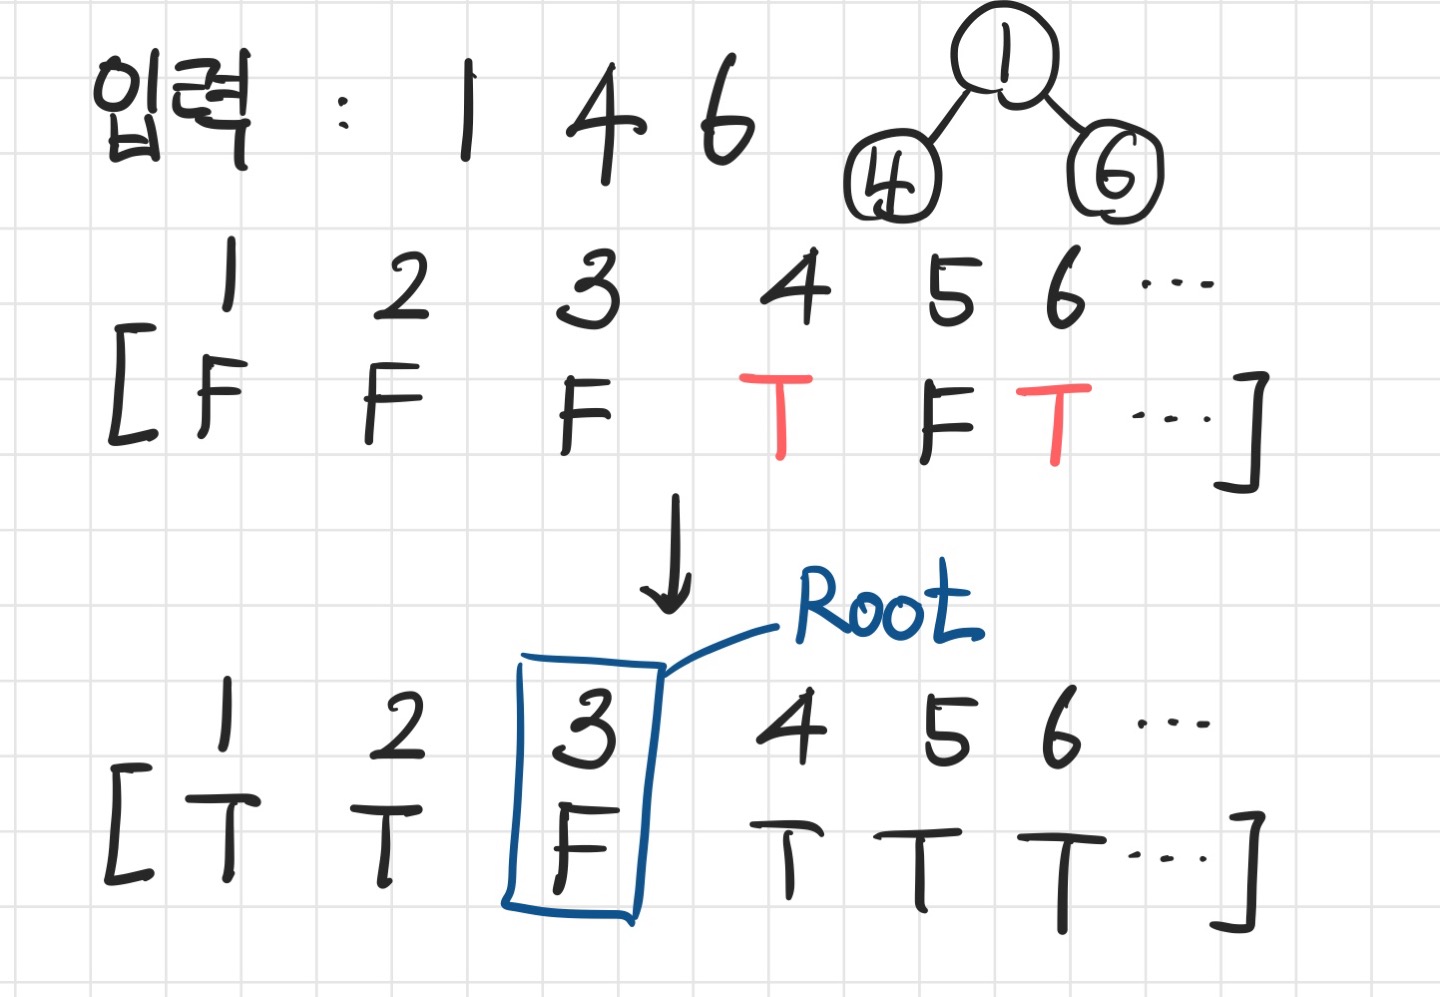 입력 : 1 4 6
1
4 6
1 2 3 4 5 6 ...
[ F F F T F T ... ]
↓
Root
1 2 3 4 5 6 ...
[ T T F T T T ... ]